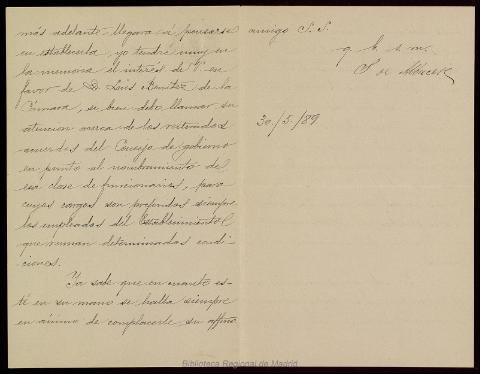 más adelante llegara á pensarse
en establecerla, yo tendré muy en
la memoria el interés de V. en
favor de D. Luis Benitez de la
Cámara, si bien debo llamar su
atencion acerca de los reiterados
acuerdos del Consejo de gobierno
en punto al nombramiento de
esa clase de funcionarios, para
cuyos cargos son preferidos siempre
los empleados del Establecimiento
que reunan determinadas condi-
ciones.
Ya sabe que en cuanto es-
té en su mano se halla siempre
en ánimo de complacerle su affmo
amigo S. S.
q b s m.
S. de
30/5/89
Biblioteca Regional de Madrid